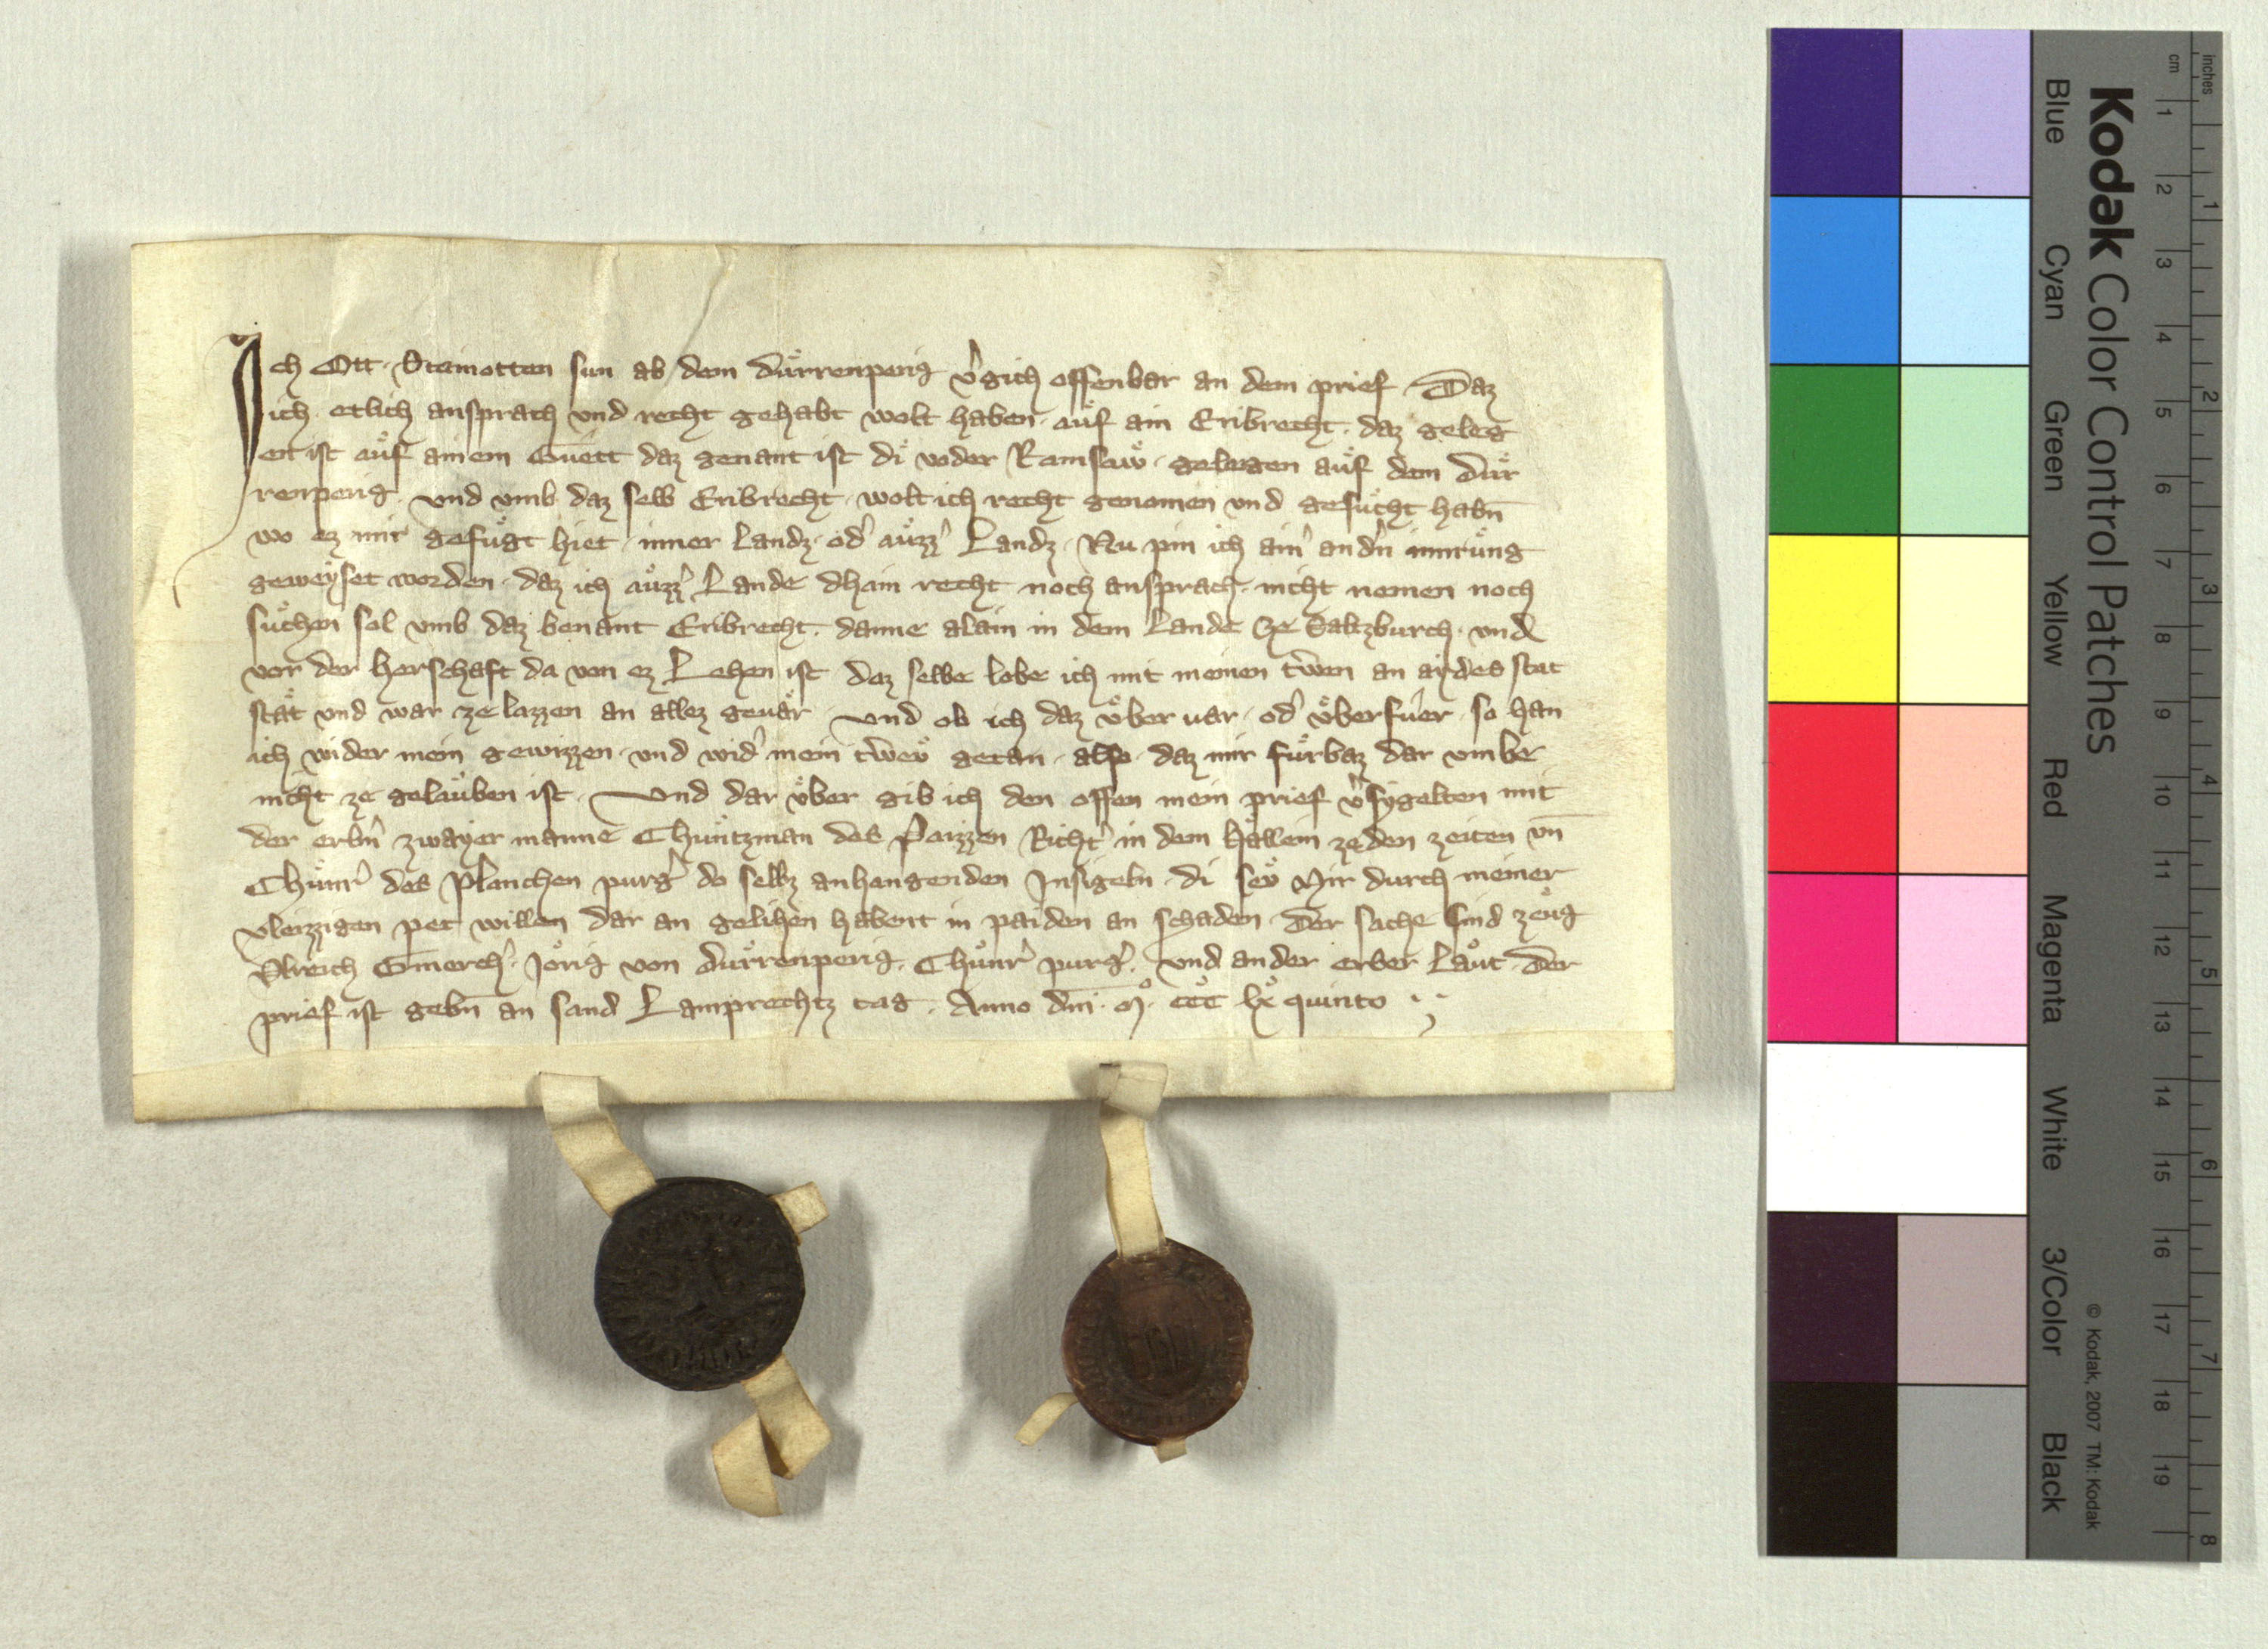 Ich Ott Stainotten sun ab dem Dürrenperig v̾gich offenbar an dem prief Daz
ich etlich ansprach vnd recht gehabt wolt haben auf ain Eribrecht daz geleg
en ist auf ainem Guett daz genant ist di voder Ramsaw gelegen auf dem Dür
renperig vnd vmb daz selb Eribrecht wolt ich recht genomen vnd gesücht habn̄
wo ez mir gefügt hiet inner Landz od̾ auzz̾ Landz Nu pin ich ain̾ and̾n innrung
geweyset worden daz ich auzz̾ Lande dhain recht noch ansprach nicht nemen noch
suchen sol vmb daz benant Eribrecht danne alain in dem Lande ze Saltzburch vnd
vor der herschaft da von ez Lehen ist daz selbe lobe ich mit meinen trwen an aydes stat
stät vnd war ze lazzen an allez geuär Vnd ob ich daz über uar od̾ überfuer so han
ich wider mein gewizzen vnd wid̾ mein trwev getan also daz mir fürbaz dar vmbe
nicht ze gelauben ist Vnd dar über gib ich den offen mein prief v̾sygelten mit
der erbn̾ zwayer manne Chuntzman des Paizzen Richt̾ in dem Hallein ze den zeiten vn̄
Chunr̾ des Planchen purg̾ do selbz anhangenden Insigeln di sev Mir durch meiner
vleizzigen pet willen dar an gelihen habent in paiden an schaden Der sache sind zeug
Vlreich Gmerch̾ Jörig von Dürrenperig Chunr̾ purg̾ vnd ander erber Laut Der
prief ist gebn̄ an sand Lamprechtz tag Anno dm̄ Mº CCC lxº quinto
Kodak Color Control Patches
Blue Cyan Green Yellow Red Magenta White 3/Color Black
© Kodak, 2007 TM: Kodak
cm 1 2 3 4 5 6 7 8 9 10 11 12 13 14 15 16 17 18 19
inches 1 2 3 4 5 6 7 8